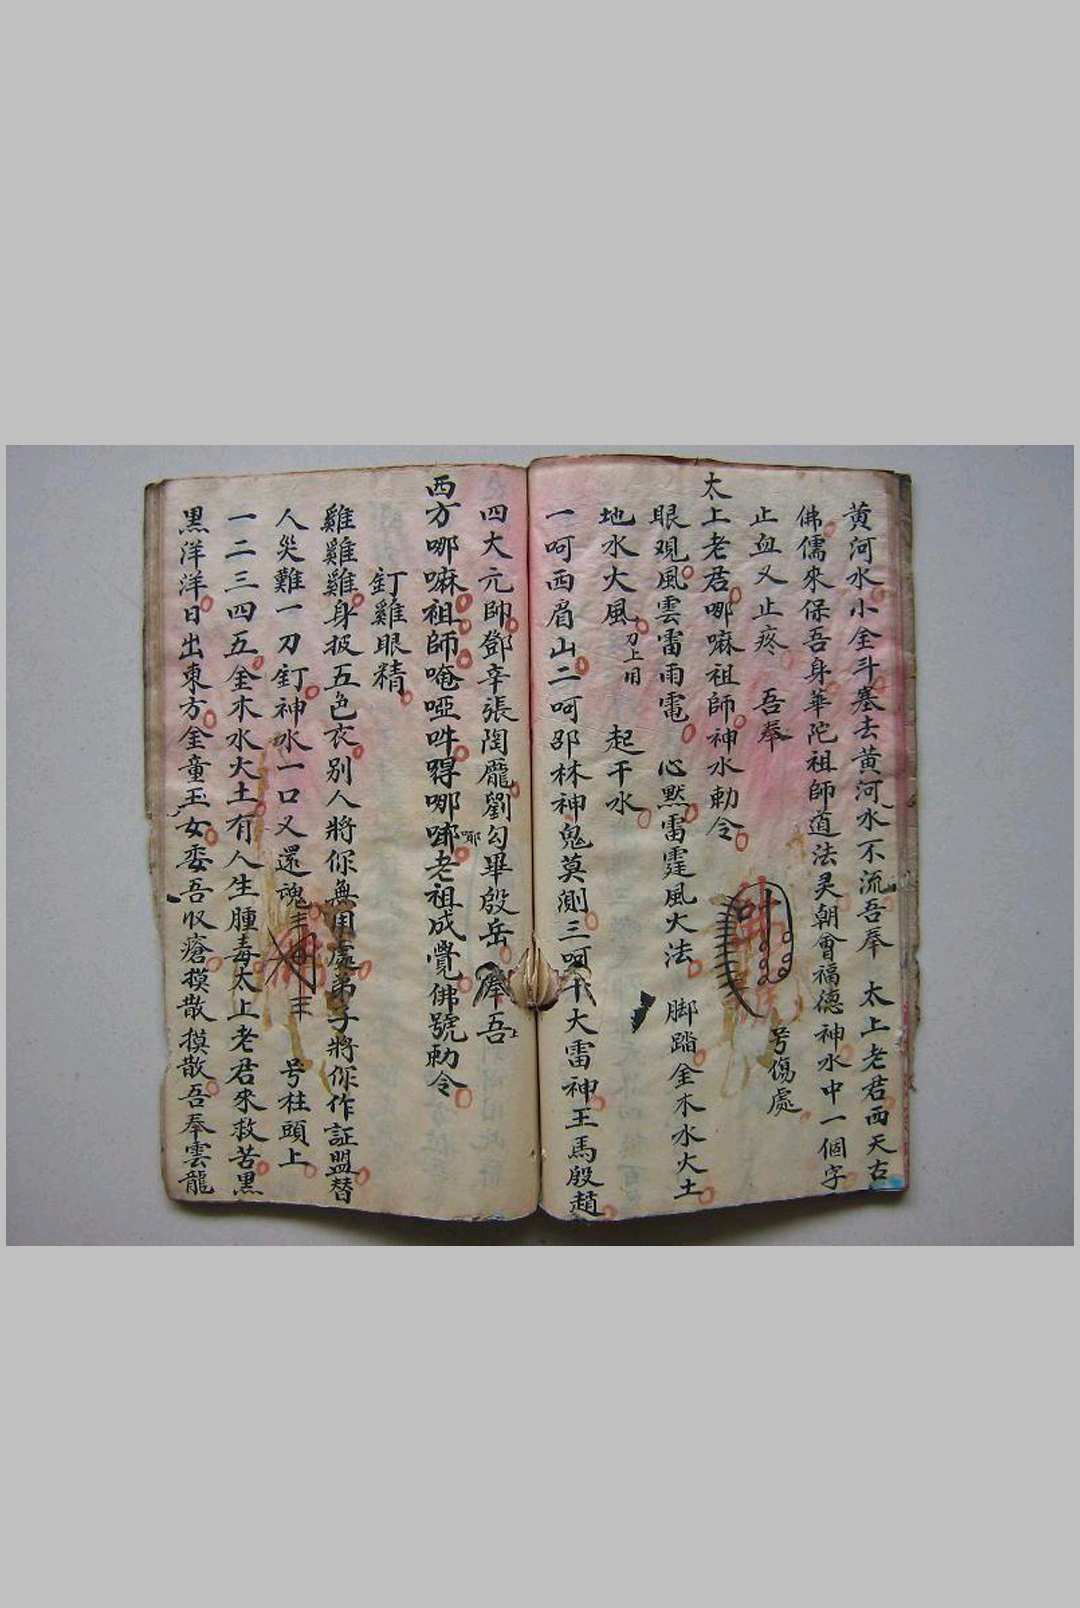 黄河水小金斗塞去黄河水不流吾奉 太上老君西天古
佛儒來保吾身華陀祖師道法灵朝會福德神水中一個字
止血又止疼 吾奉 号傷處
太上老君哪嘛祖師神水勅令
眼观風雲雷雨電 心黙雷霆風火法 脚踏金木水火土
地水大風刀上用 起干水
一呵西眉山二呵邵林神鬼莫測三呵千大雷神王馬殷趙
四大元帥鄧辛張陶龐劉勾畢殷岳 奉吾
西方哪嘛祖師唵啞吽 哪哪老祖成覺佛號勅令
釘雞眼精
雞雞雞身披五色衣别人將你無用處弟子將你作証盟替
人災難一刀釘神水一口又還魂 号柱頭上
一二三四五金木水火土有人生腫毒太上老君來救苦黑
黑洋洋日出東方金童玉女委吾収瘡摸散摸散吾奉雲龍